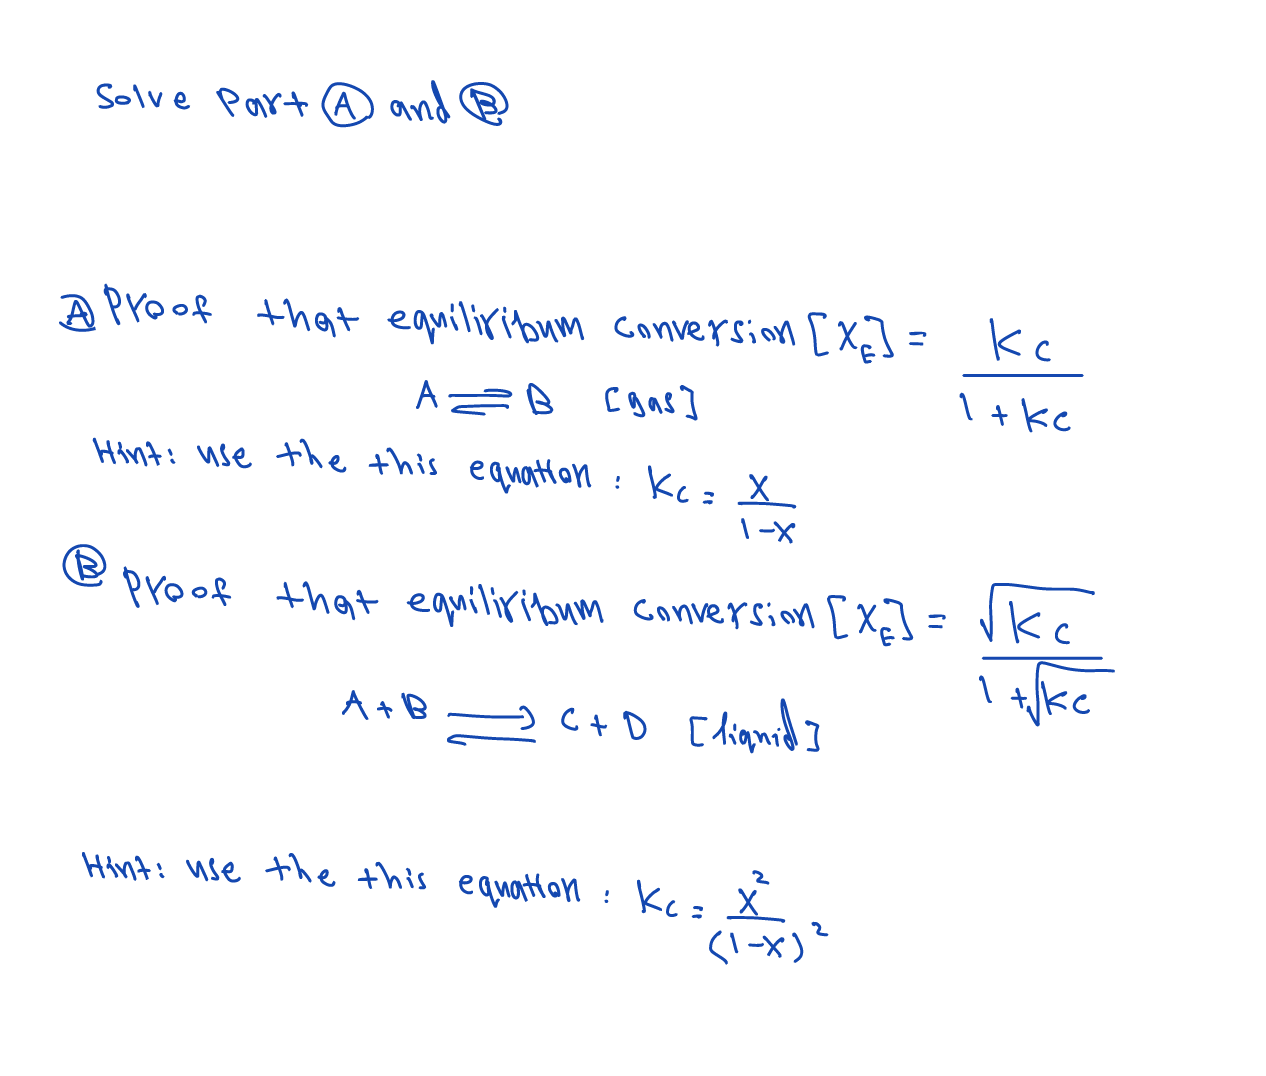 Solve Part Ⓐ and Ⓑ
Ⓐ Proof that equiliribum conversion [X_E] = Kc / 1 + Kc
A ⇌ B [gas]
Hint: use the this equation : Kc = X / 1-X
Ⓑ Proof that equiliribum conversion [X_E] = √Kc / 1 + √Kc
A + B ⇌ C + D [liquid]
Hint: use the this equation : Kc = X² / (1-X)²